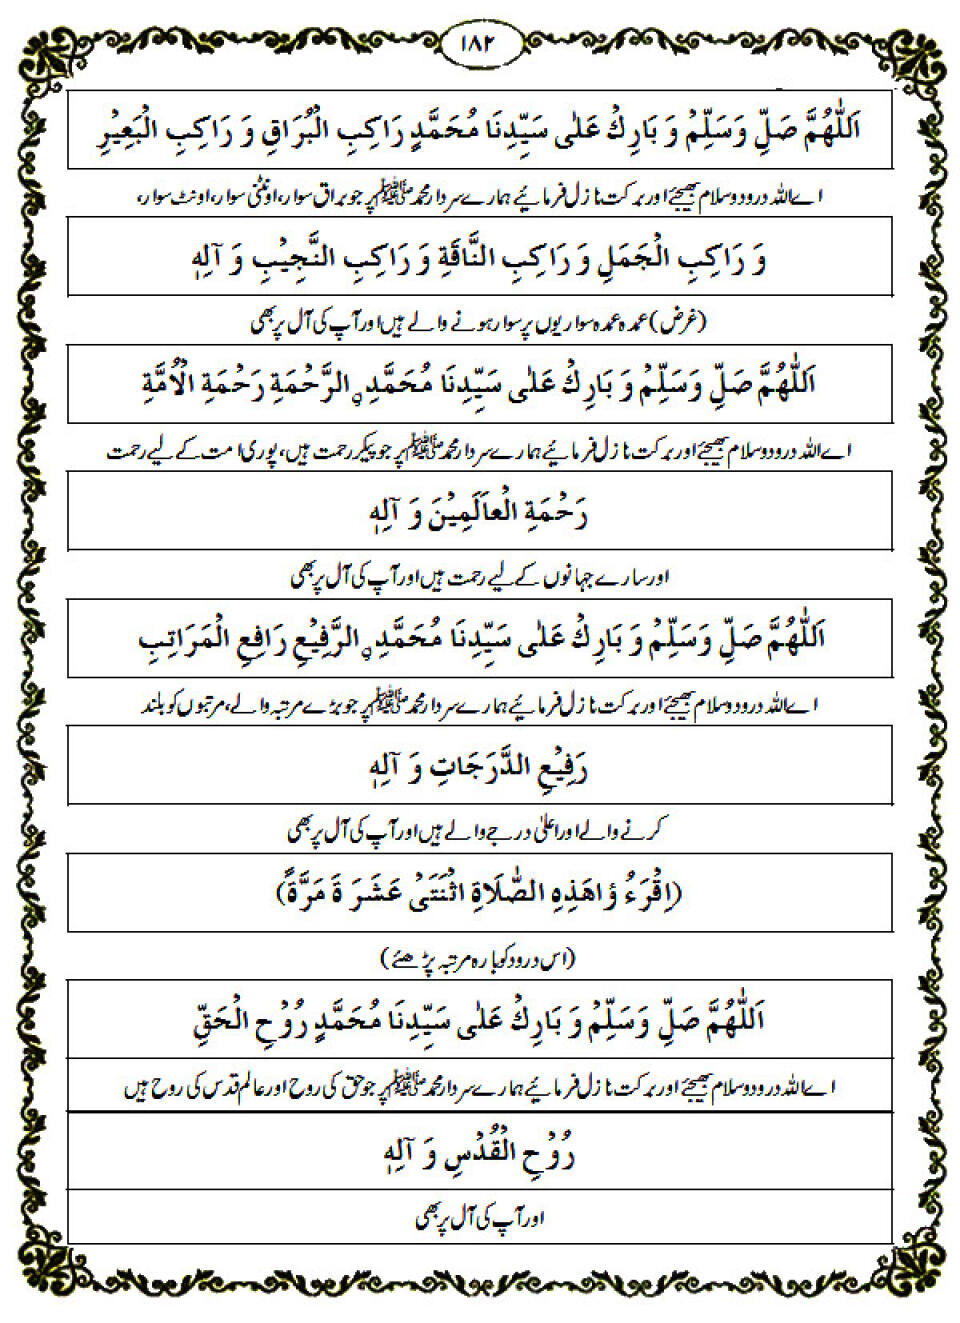 ۱۸۲
اَللّٰهُمَّ صَلِّ وَسَلِّمْ وَ بَارِكْ عَلٰى سَيِّدِنَا مُحَمَّدٍ رَاكِبِ الْبُرَاقِ وَ رَاكِبِ الْبَعِيْرِ
اے اللہ درود و سلام بھیجئے اور برکت نازل فرمائیے ہمارے سردار محمد ﷺ پر جو براق سوار، اونٹنی سوار، اونٹ سوار،
وَ رَاكِبِ الْجَمَلِ وَ رَاكِبِ النَّاقَةِ وَ رَاكِبِ النَّجِيْبِ وَ آلِهٖ
(غرض) عمدہ عمدہ سواریوں پر سوار ہونے والے ہیں اور آپ کی آل پر بھی
اَللّٰهُمَّ صَلِّ وَسَلِّمْ وَ بَارِكْ عَلٰى سَيِّدِنَا مُحَمَّدِ ۣالرَّحْمَةِ رَحْمَةِ الْاُمَّةِ
اے اللہ درود و سلام بھیجئے اور برکت نازل فرمائیے ہمارے سردار محمد ﷺ پر جو پیکر رحمت ہیں، پوری امت کے لیے رحمت
رَحْمَةِ الْعاَلَمِيْنَ وَ آلِهٖ
اور سارے جہانوں کے لیے رحمت ہیں اور آپ کی آل پر بھی
اَللّٰهُمَّ صَلِّ وَسَلِّمْ وَ بَارِكْ عَلٰى سَيِّدِنَا مُحَمَّدِ ۣالرَّفِيْعِ رَافِعِ الْمَرَاتِبِ
اے اللہ درود و سلام بھیجئے اور برکت نازل فرمائیے ہمارے سردار محمد ﷺ پر جو بڑے مرتبہ والے، مرتبوں کو بلند
رَفِيْعِ الدَّرَجَاتِ وَ آلِهٖ
کرنے والے اور اعلیٰ درجے والے ہیں اور آپ کی آل پر بھی
(اِقْرَءُ وْاهَذِهِ الصَّلَاةِ اثْنَتَىْ عَشَرَ ةَ مَرَّةً)
(اس درود کو بارہ مرتبہ پڑھئے)
اَللّٰهُمَّ صَلِّ وَسَلِّمْ وَ بَارِكْ عَلٰى سَيِّدِنَا مُحَمَّدٍ رُوْحِ الْحَقِّ
اے اللہ درود و سلام بھیجئے اور برکت نازل فرمائیے ہمارے سردار محمد ﷺ پر جو حق کی روح اور عالم قدس کی روح ہیں
رُوْحِ الْقُدْسِ وَ آلِهٖ
اور آپ کی آل پر بھی